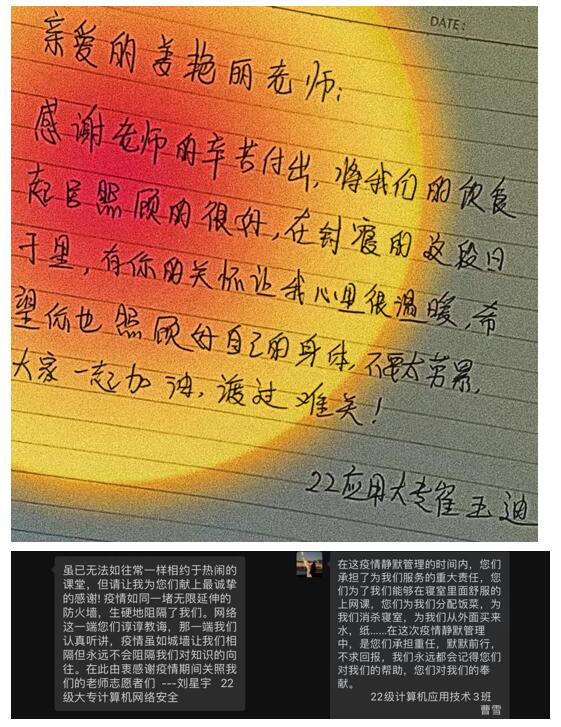 DATE:
亲爱的姜艳丽老师:
感谢老师的辛苦付出,将我们的饮食
起居照顾的很好,在封寝的这段日
子里,有你的关怀让我心里很温暖,希
望你也照顾好自己的身体,不要太劳累,
大家一起加油,渡过难关!
22应用大专崔玉迪
虽已无法如往常一样相约于热闹的
课堂,但请让我为您们献上最诚挚
的感谢! 疫情如同一堵无限延伸的
防火墙,生硬地阻隔了我们。网络
这一端您们谆谆教诲,那一端我们
认真听讲,疫情虽如城墙让我们相
隔但永远不会阻隔我们对知识的向
往。在此由衷感谢疫情期间关照我
们的老师志愿者们 ---刘星宇 22
级大专计算机网络安全
在这疫情静默管理的时间内,您们
承担了为我们服务的重大责任,您
们为了我们能够在寝室里面舒服的
上网课,您们为我们分配饭菜,为
我们消杀寝室,为我们从外面买来
水,纸......在这次疫情静默管理
中,是您们承担重任,默默前行,
不求回报,我们永远都会记得您们
对我们的帮助,您们对我们的奉
献。
22级计算机应用技术3班
曹雪